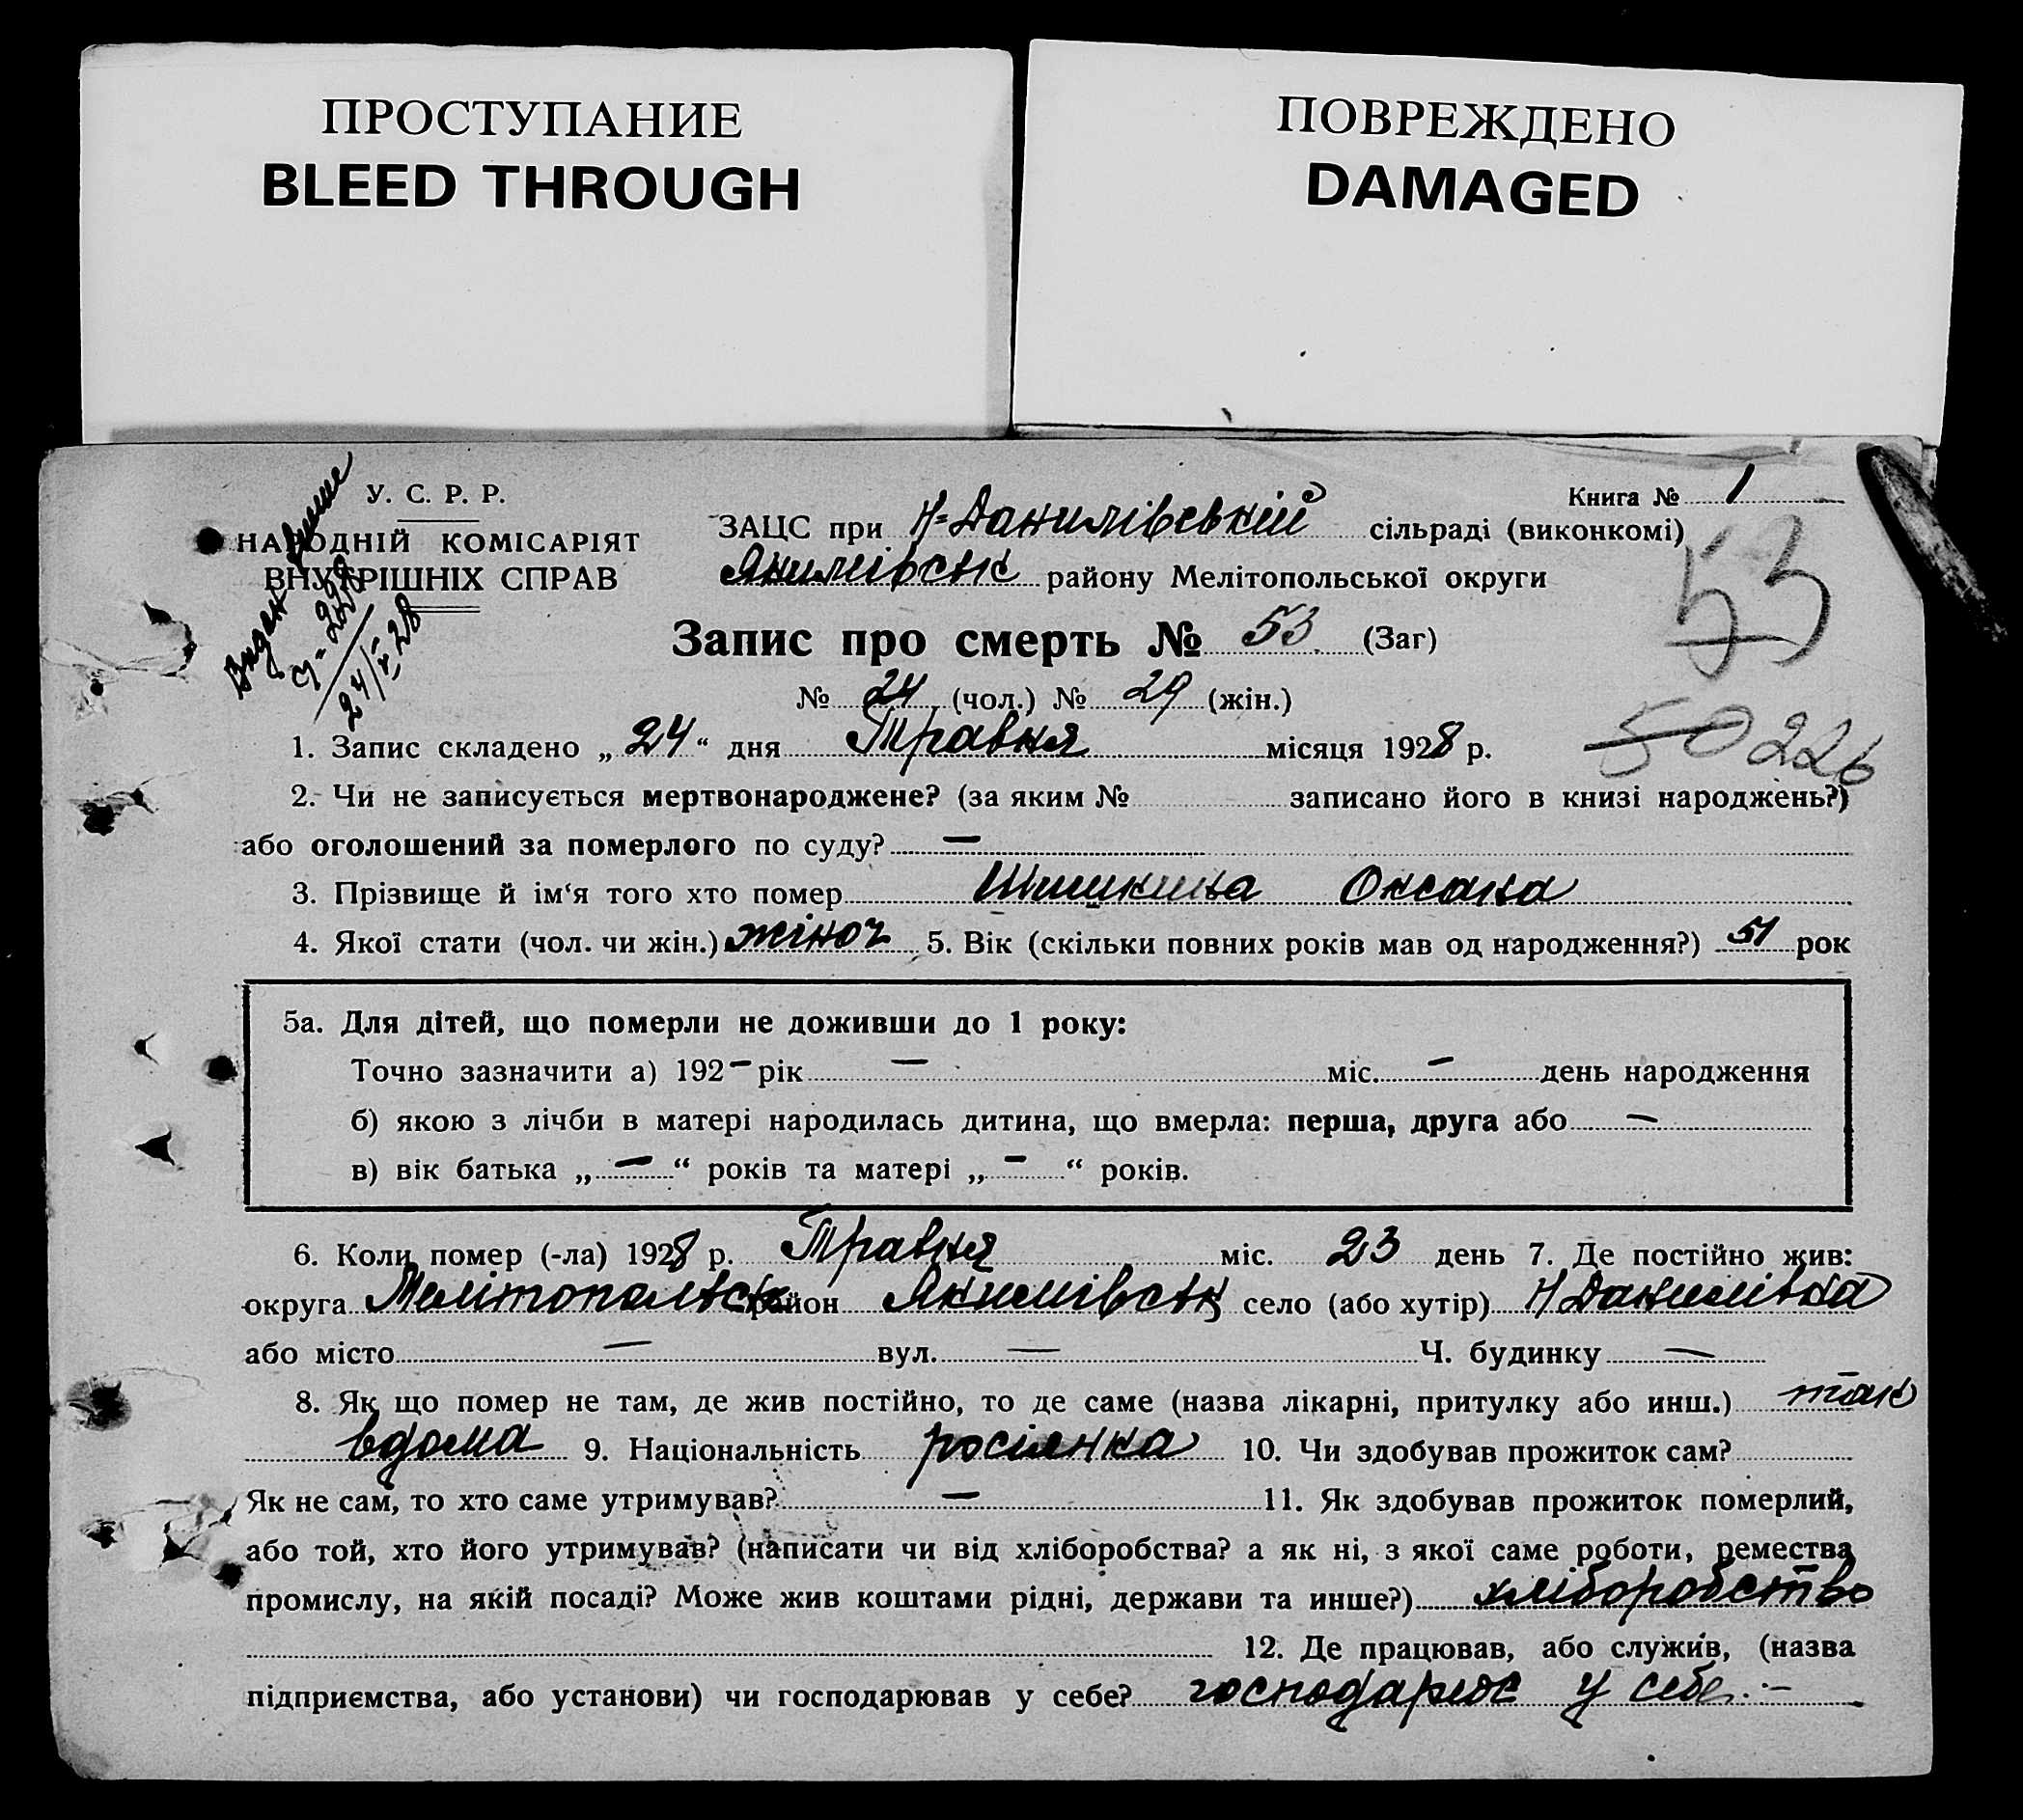 ПРОСТУПАНИЕ
BLEED THROUGH
ПОВРЕЖДЕНО
DAMAGED
У. С. Р. Р.
НАРОДНІЙ КОМІСАРІЯТ
ВНУТРІШНІХ СПРАВ
Книга № 1
ЗАЦС при Н-Данилівській сільраді (виконкомі)
Якимівськ району Мелітопольської округи
53
24/V 28
Запис про смерть № 53. (Заг)
№ 24 (чол.) № 29 (жін.)
50 226
1. Запис складено „24“ дня Травня місяця 1928 р.
2. Чи не записується мертвонароджене? (за яким № записано його в книзі народжень?)
або оголошений за померлого по суду? —
3. Прізвище й ім‘я того хто помер Шишкина Оксана
4. Якої стати (чол. чи жін.) жіноч 5. Вік (скільки повних років мав од народження?) 51 рок
5а. Для дітей, що померли не доживши до 1 року:
Точно зазначити а) 192– рік — міс. – день народження
б) якою з лічби в матері народилась дитина, що вмерла: перша, друга або —
в) вік батька „—“ років та матері „–“ років.
6. Коли помер (-ла) 1928 р. Травня міс. 23 день 7. Де постійно жив:
округа Мелітопольськ район Якимівськ село (або хутір) Н Данилівка
або місто — вул. — Ч. будинку —
8. Як що помер не там, де жив постійно, то де саме (назва лікарні, притулку або инш.) так
вдома 9. Національність росіянка 10. Чи здобував прожиток сам?
Як не сам, то хто саме утримував? — 11. Як здобував прожиток померлий,
або той, хто його утримував? (написати чи від хліборобства? а як ні, з якої саме роботи, ремества
промислу, на якій посаді? Може жив коштами рідні, держави та инше?) хліборобство
12. Де працював, або служив, (назва
підприємства, або установи) чи господарював у себе? господарює у себе. –